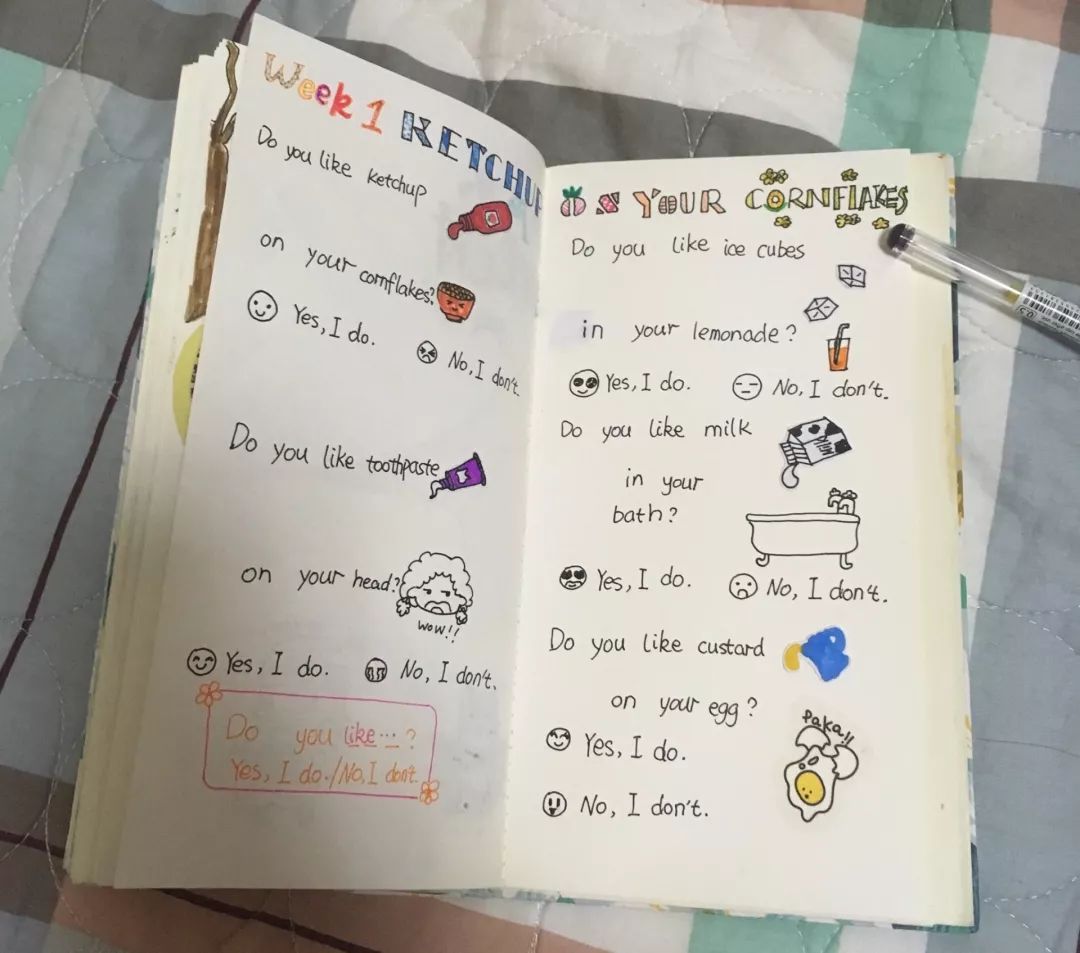 Week 1 KETCHUP
Do you like ketchup
on your cornflakes?
Yes, I do.
No, I don't.
Do you like toothpaste
on your head?
wow!!
Yes, I do.
No, I don't.
Do you like...?
Yes, I do./No, I don't.
ON YOUR CORNFLAKES
Do you like ice cubes
in your lemonade?
Yes, I do.
No, I don't.
Do you like milk
in your
bath?
Yes, I do.
No, I don't.
Do you like custard
on your egg?
Paka!!
Yes, I do.
No, I don't.